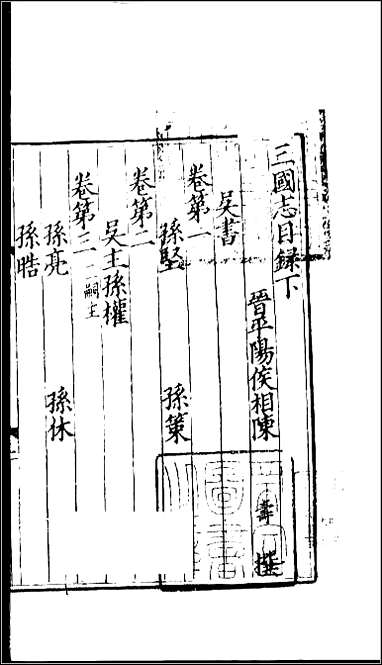 三國志目録下
晉平陽侯相陳壽撰
吳書
卷第一
孫堅 孫策
卷第二
吳主孫權
卷第三 三嗣主
孫亮 孫休
孫晧